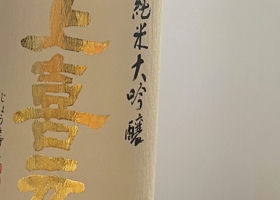 純米大吟醸
上喜元
じょうき